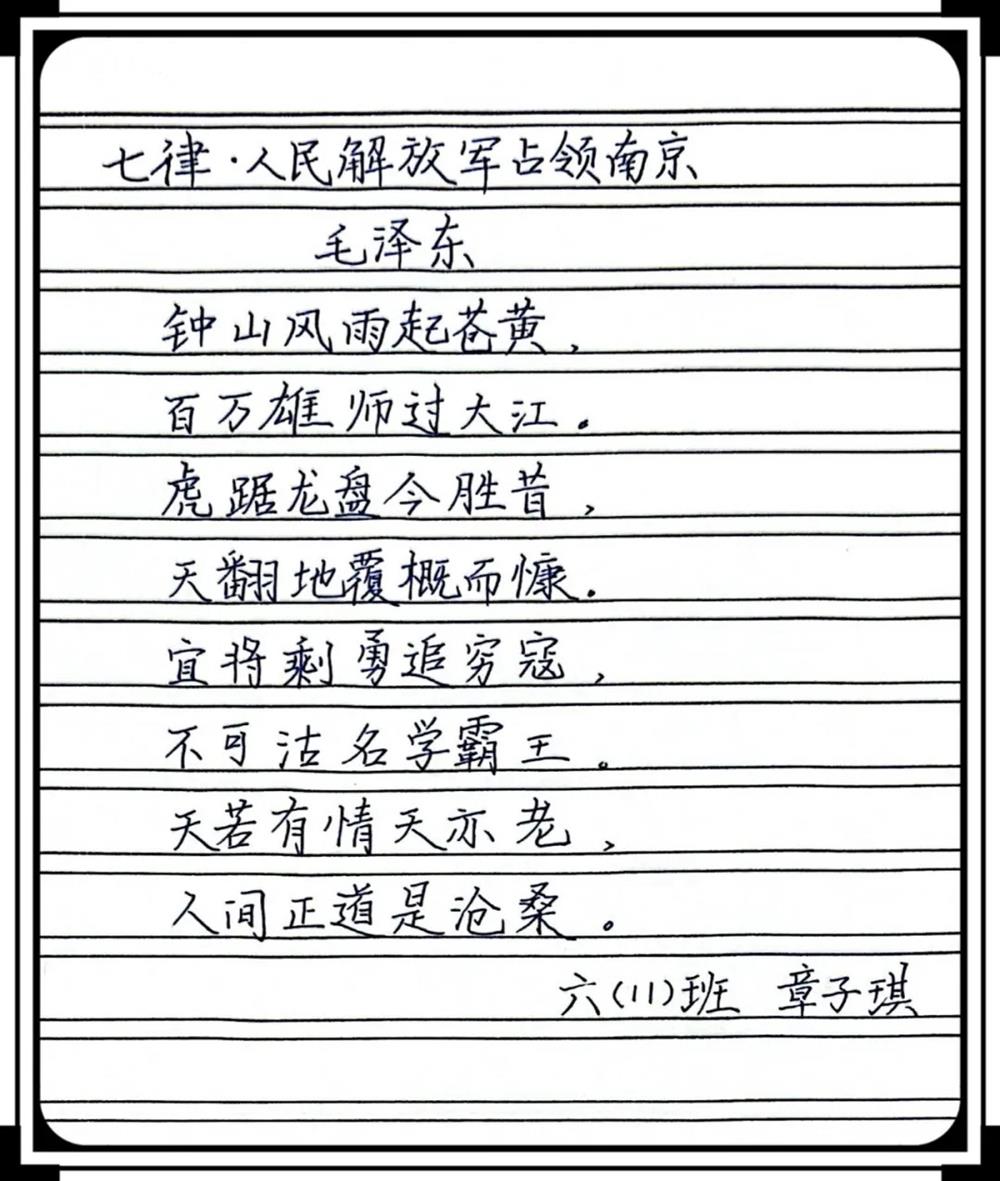 七律·人民解放军占领南京
毛泽东
钟山风雨起苍黄，
百万雄师过大江。
虎踞龙盘今胜昔，
天翻地覆概而慷。
宜将剩勇追穷寇，
不可沽名学霸王。
天若有情天亦老，
人间正道是沧桑。
六(11)班 章子琪